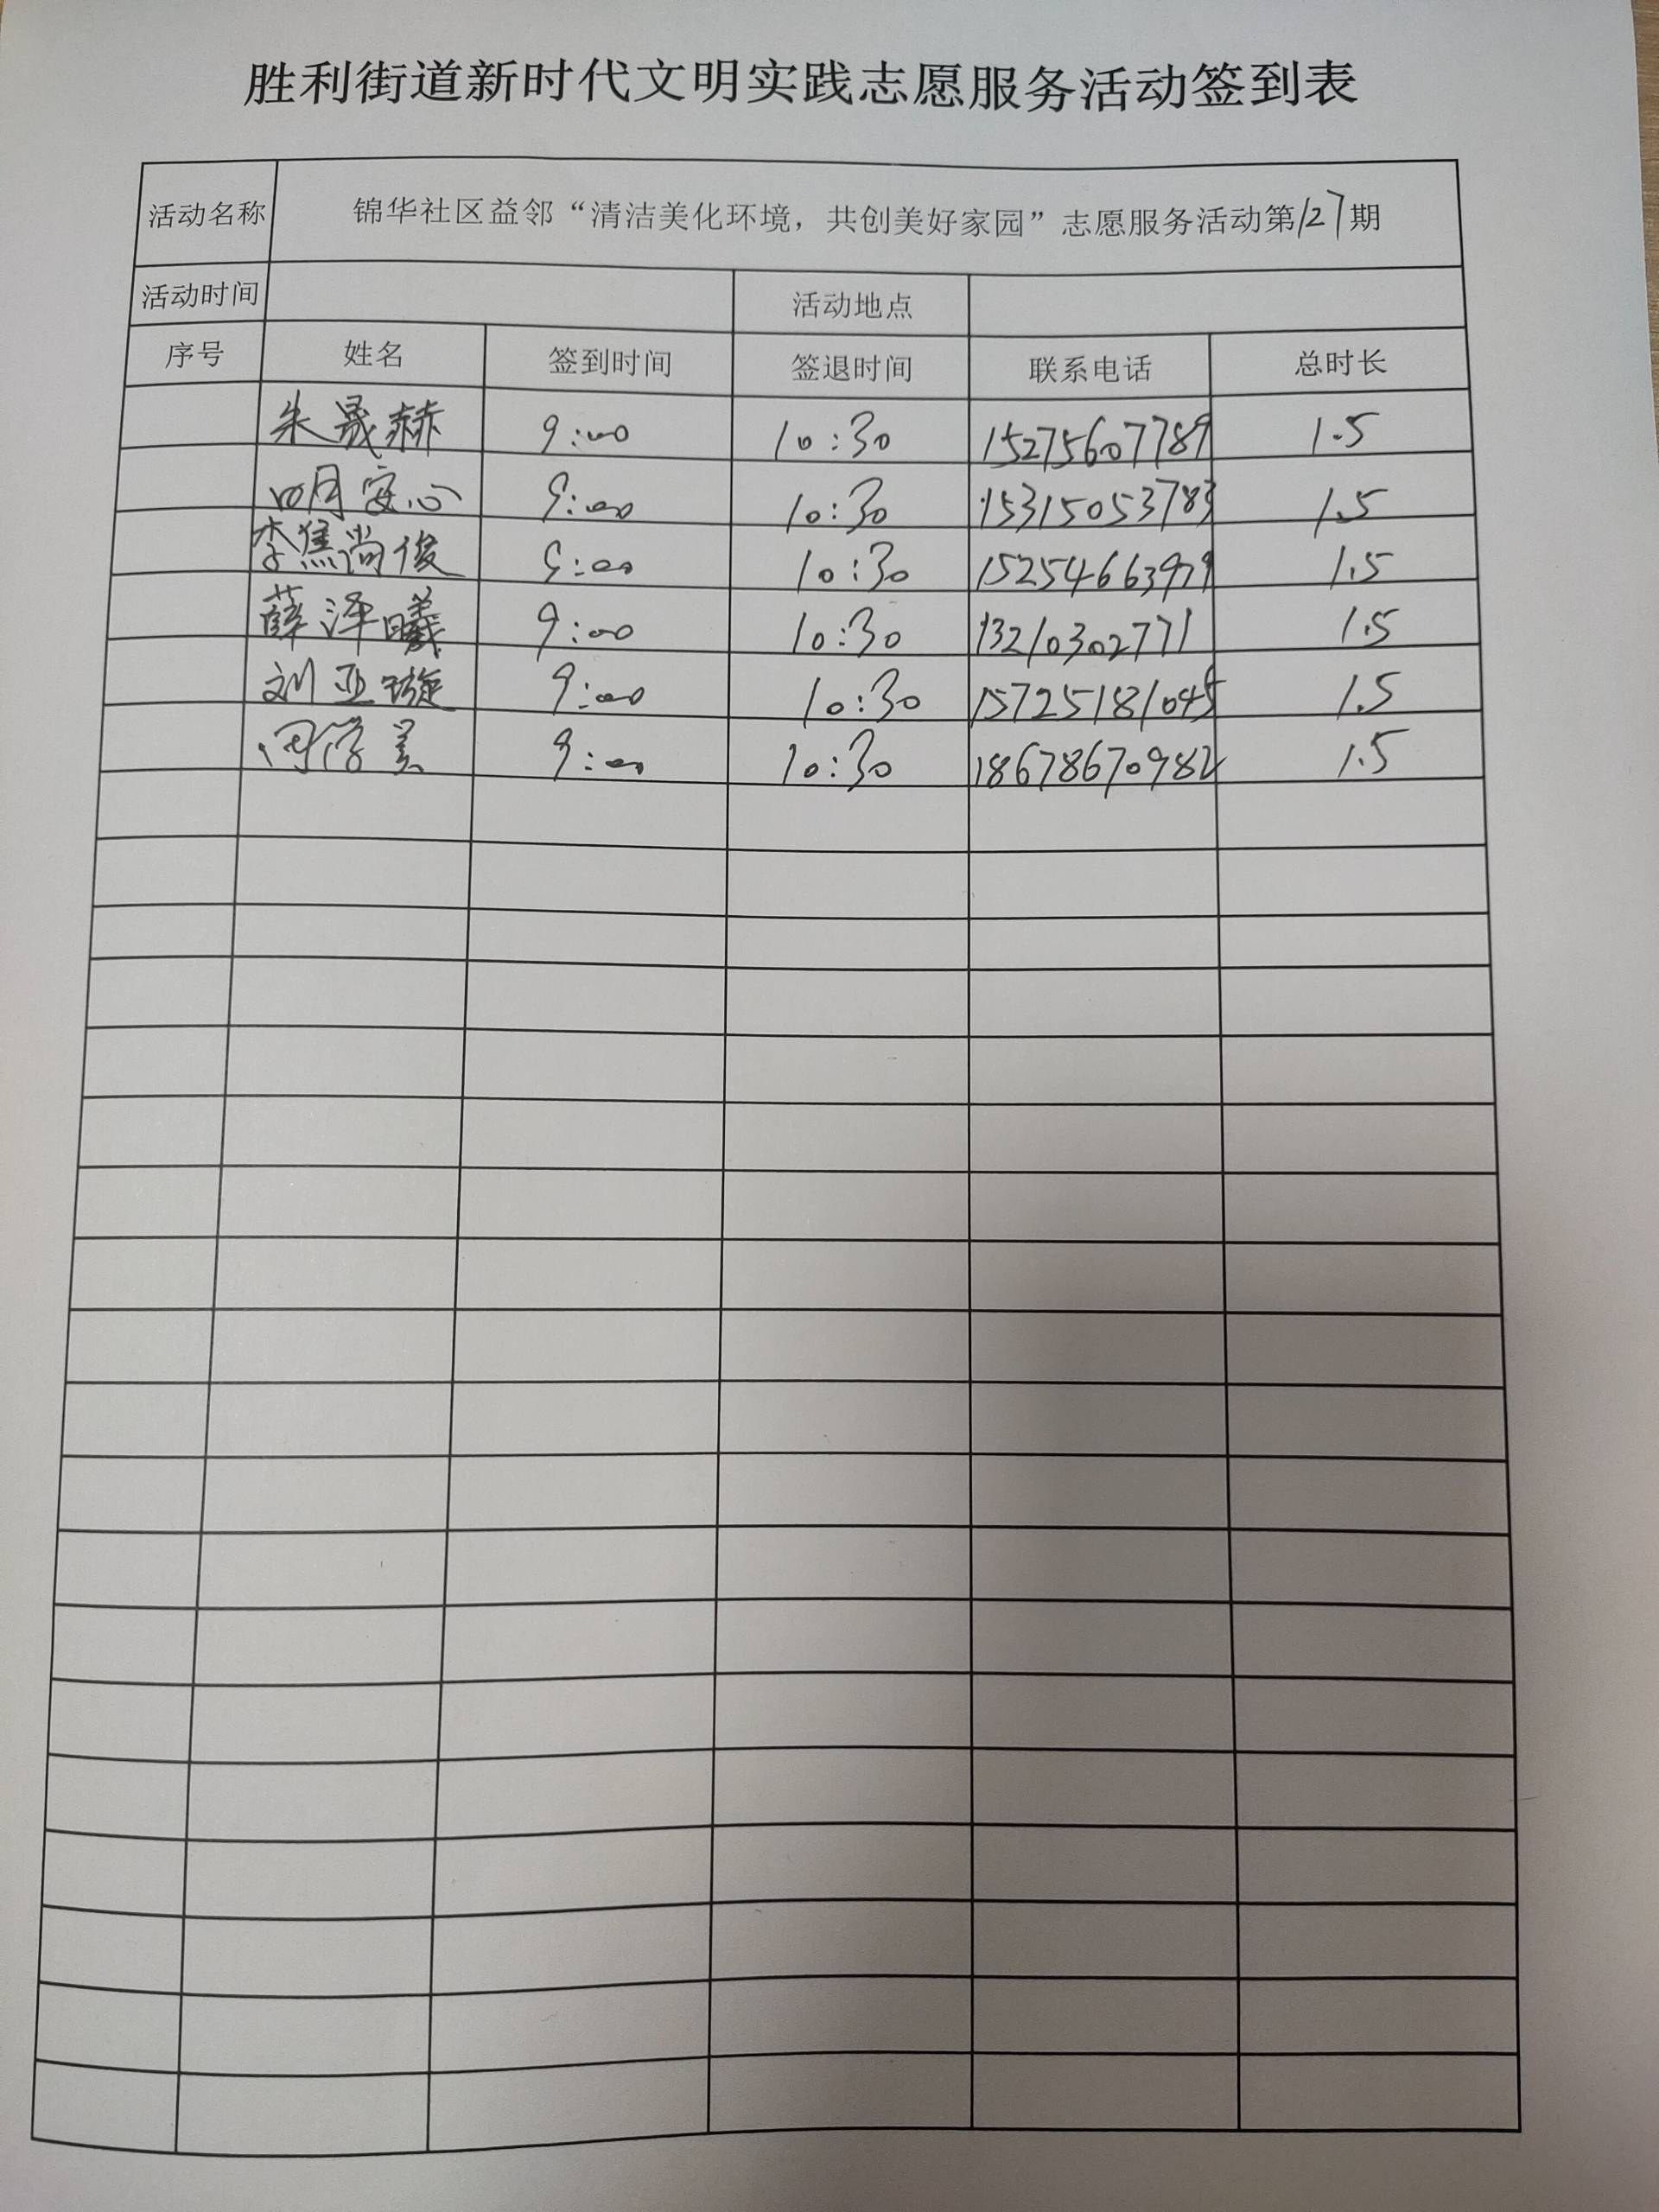 胜利街道新时代文明实践志愿服务活动签到表
活动名称 锦华社区益邻“清洁美化环境，共创美好家园”志愿服务活动第127期
活动时间 活动地点
序号 姓名 签到时间 签退时间 联系电话 总时长
朱晟赫 9:00 10:30 15275607789 1.5
明安心 9:00 10:30 15315053783 1.5
李焦尚俊 9:00 10:30 15254663979 1.5
薛泽曦 9:00 10:30 13210302771 1.5
刘亚璇 9:00 10:30 1.5
9:00 10:30 18678670982 1.5